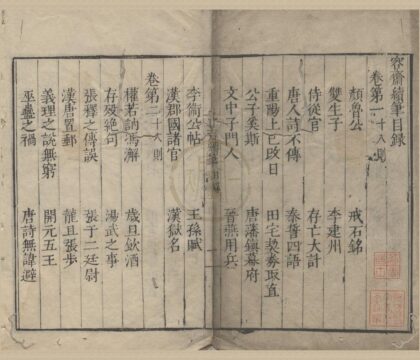 容齋續筆目錄
卷第一 十八則
顏魯公 戒石銘
雙生子 李建州
侍從官 存亡大計
唐人詩不傳 泰誓四語
重陽上巳改日 田宅契券取直
公子奚斯 唐藩鎮幕府
文中子門人 晉燕用兵
李衛公帖 王孫賦
漢郡國諸官 漢獄名
卷第二 十八則
權若訥馮澥 歲旦飲酒
存歿絕句 湯武之事
張釋之傳誤 張于二廷尉
漢唐置郵 龍且張步
義理之說無窮 開元五王
巫蠱之禍 唐詩無諱避